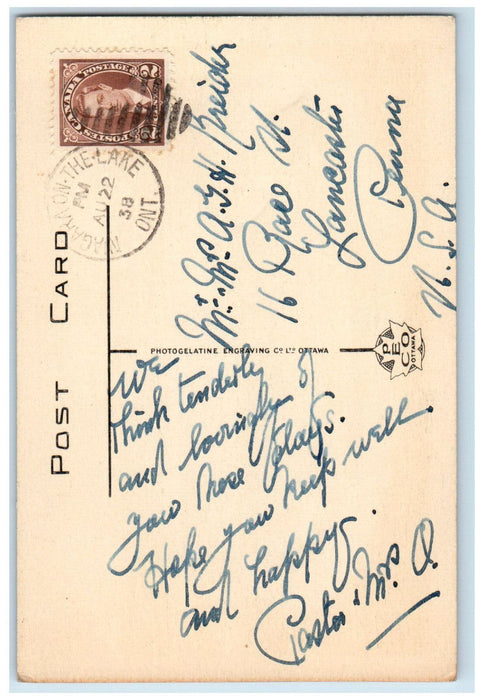 POST CARD
CANADA POSTAGE
POSTES
2
2
NIAGARA-ON-THE-LAKE
PM
AU 22
38
ONT.
Mr. Mrs A. G. H. Kreider
16 Race St.
Lancaster
Penna
U.S.A.
PHOTOGELATINE ENGRAVING CO LTD OTTAWA
PECO
OTTAWA
We
think tenderly
and lovingly of
you these days.
Hope you keep well
and happy.
Pastor & Mrs. O.